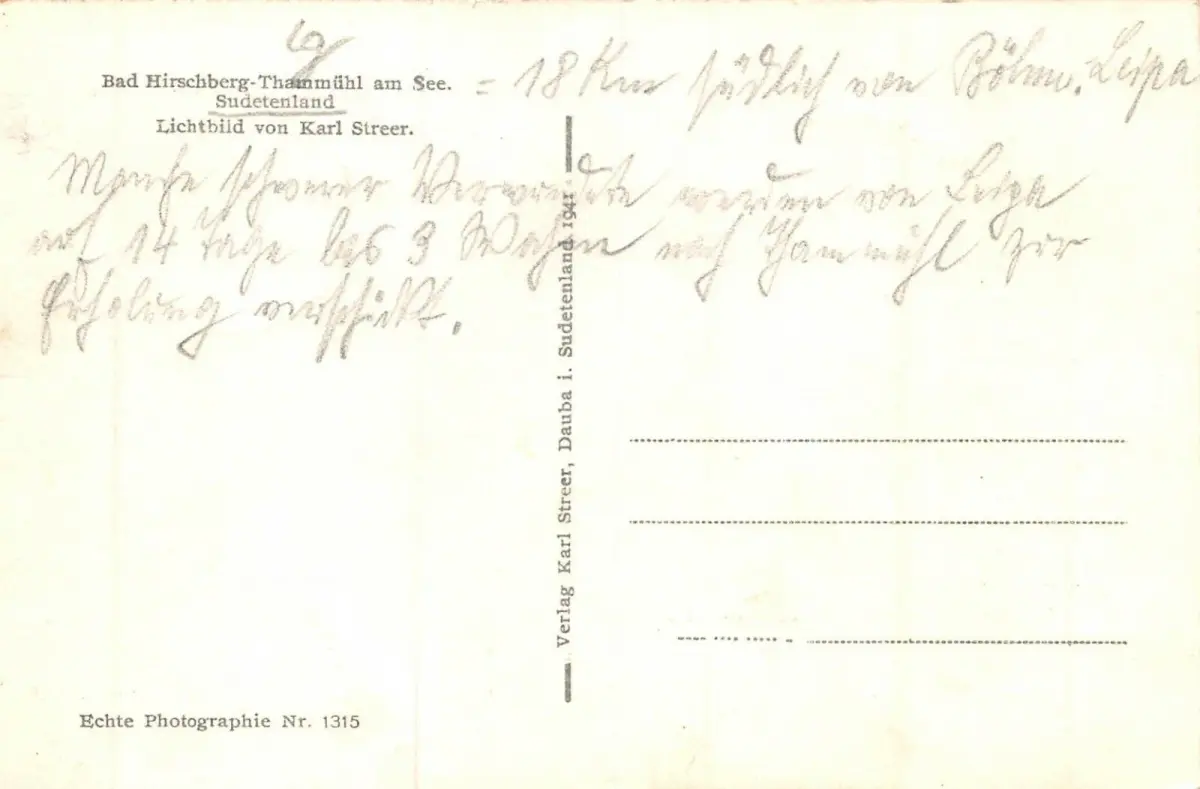 6)
Bad Hirschberg-Thammühl am See. = 18 Km südlich von Böhm. Leipa
Sudetenland
Lichtbild von Karl Streer.
Manche schwerer Verwundete werden von Leipa
auf 14 Tage bis 3 Wochen nach Thammühl zur
Erholung verschickt.
Verlag Karl Streer, Dauba i. Sudetenland 1941
Echte Photographie Nr. 1315